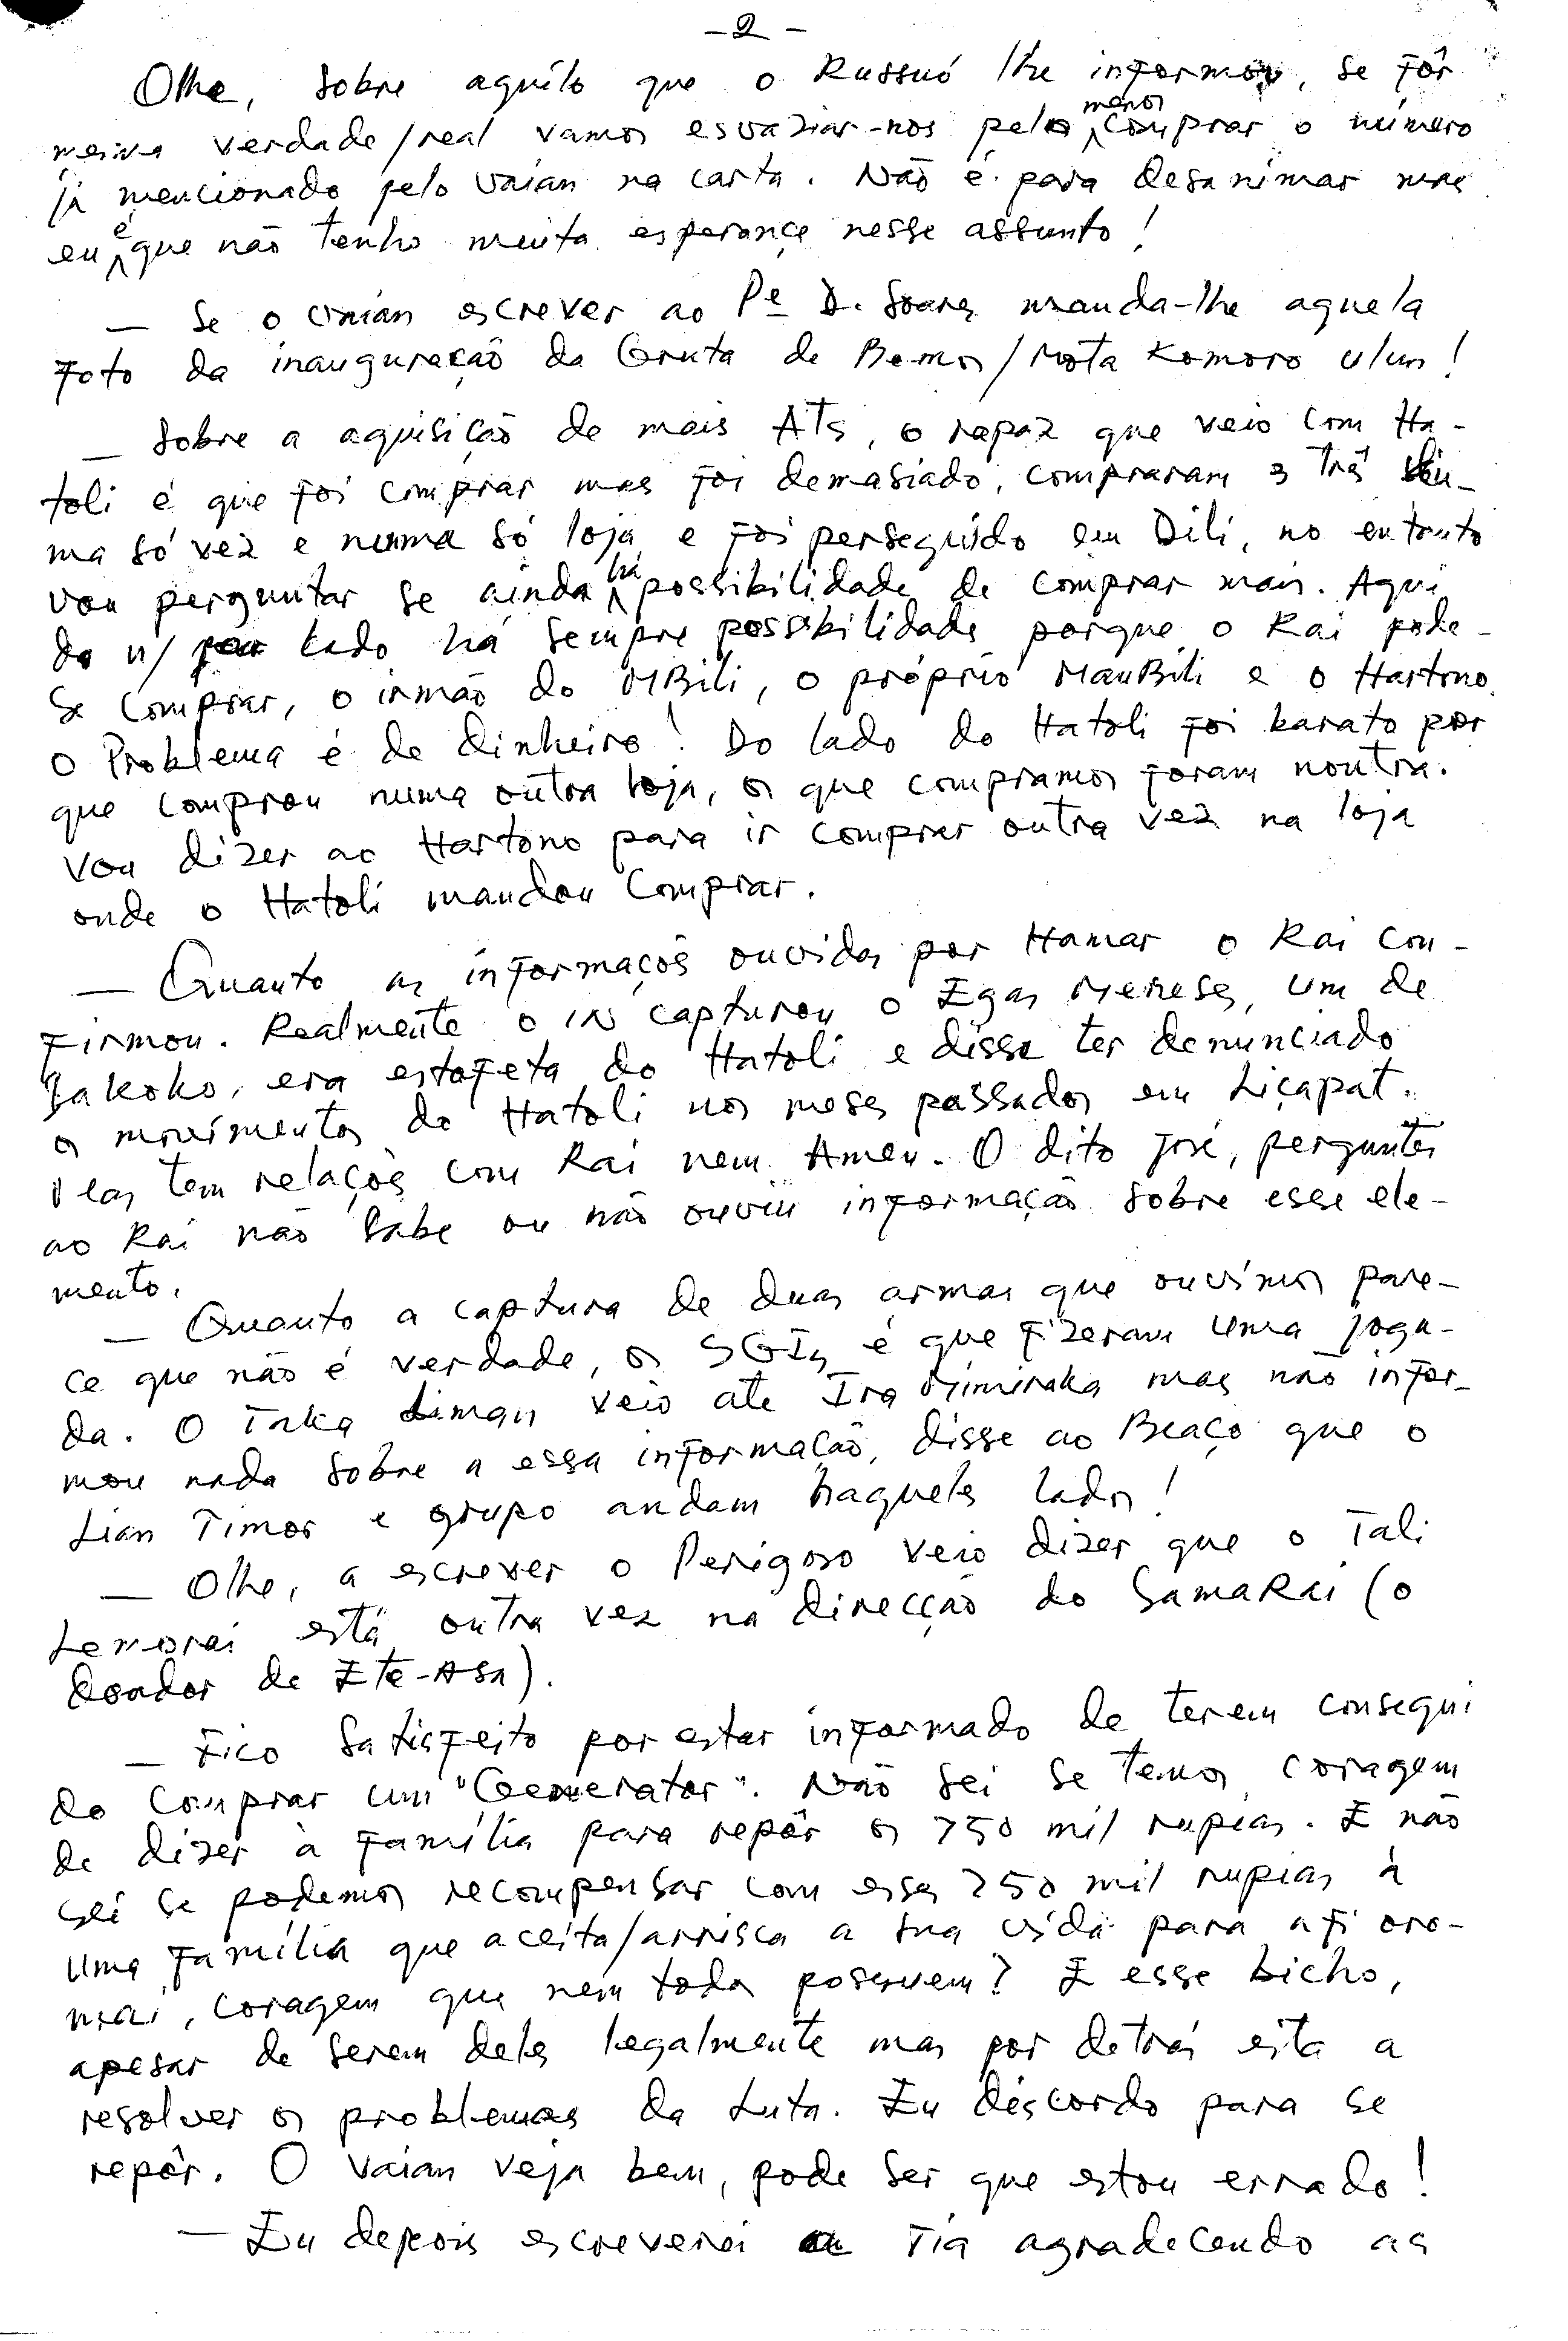 - 2 -
Olhe, sobre aquilo que o Russuó lhe informou, se fôr
mesmo verdade/real vamos esvaziar-nos pelo menos comprar o número
já mencionado pelo Vaian na carta. Não é para desanimar mas
eu é que não tenho muita esperança nesse assunto!
— Se o Vaian escrever ao Pe D. Soares manda-lhe aquela
foto da inauguração da Gruta de Bemos/Mota Komoro ulun!
— Sobre a aquisição de mais ATs, o rapaz que veio com Ha-
toli é que foi comprar mas foi demasiado, compraram 3 três
ma só vez e numa só loja e foi perseguido em Dili, no entanto
vou perguntar se ainda há possibilidade de comprar mais. Aqui
do n/ lado há sempre possibilidade porque o Rai pode-
se comprar, o irmão do MBili, o próprio MauBili e o Hartono.
O Problema é de dinheiro! Do lado do Hatoli foi barato por
que comprou numa outra loja, os que compramos foram noutra.
Vou dizer ao Hartono para ir comprar outra vez na loja
onde o Hatoli mandou comprar.
— Quanto as informaçõs ouvidas por Hamar o Rai con-
firmou. Realmente o IN capturou o Egas Meneses, um de
Sakoko, era estafeta do Hatoli e disse ter denunciado
os movimentos do Hatoli nos meses passados em Liçapat.
tem relaçõs com Rai nem Ameu. O dito José, perguntei
ao Rai não sabe ou não ouviu informação sobre esse ele-
mento.
— Quanto a captura de duas armas que ouvimos pare-
ce que não é verdade, os SGIs é que fizeram uma joga-
da. O Taka Liman veio até Ira Miminaka mas não infor-
mou nada sobre a essa informação, disse ao Beaço que o
Lian Timor e grupo andam naqueles lados!
— Olhe, a escrever o Perigoso veio dizer que o Tali
Lemorai está outra vez na direcção do SamaRai (o
doador de Ete-Asa).
— Fico satisfeito por estar informado de terem consegui
do comprar um "Generator". Não sei se temos coragem
de dizer à família para repôr os 750 mil rupias. E não
sei se podemos recompensar com esses 750 mil rupias à
uma família que aceita/arrisca a sua vida para afi oro-
mai, coragem que nem todos possuem? E esse bicho,
apesar de serem deles legalmente mas por detrás está a
resolver os problemas da Luta. Eu discordo para se
repôr. O Vaian veja bem, pode ser que estou errado!
— Eu depois escreverei Tia agradecendo as